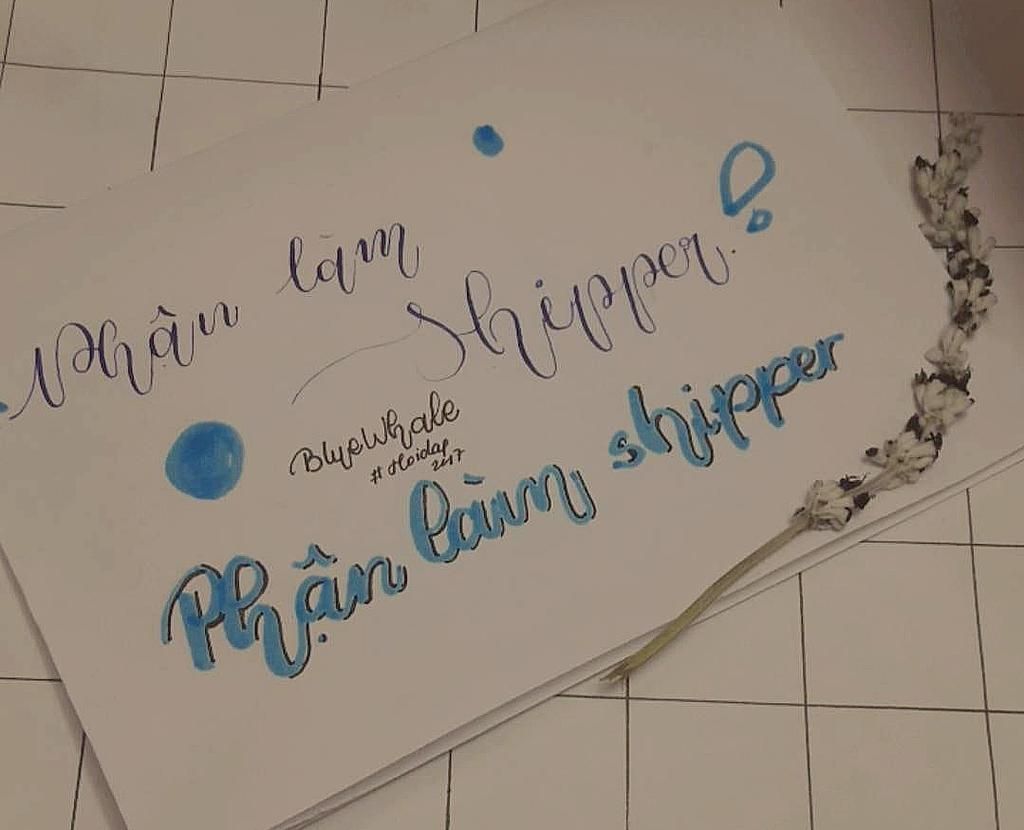 Phận làm
shipper.
BlueWhale
#Hoidap
2017
Phận làm shipper